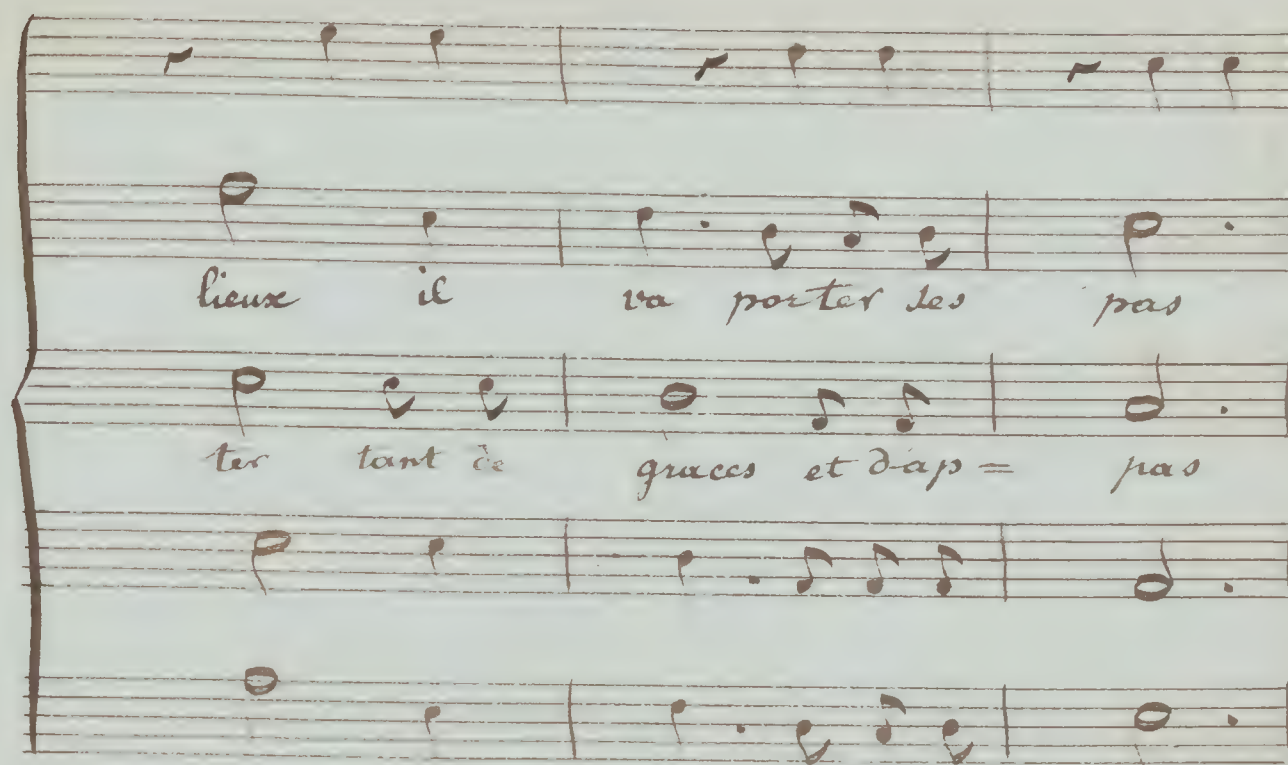 lieux il va porter ses pas
ter tant de graces et d'ap = pas